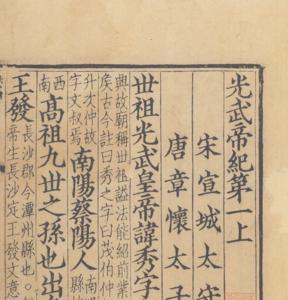 光武帝紀第一上
宋宣城太守
唐章懷太子
世祖光武皇帝諱秀字
興故廟稱世祖謚法能紹前業
矦古今註曰秀之字曰茂伯仲
升次仲故
字文叔焉
南陽蔡陽人
南陽
縣
西
南
高祖九世之孫也出
王發
長沙郡今潭州縣也○
帝生長沙定王發文意